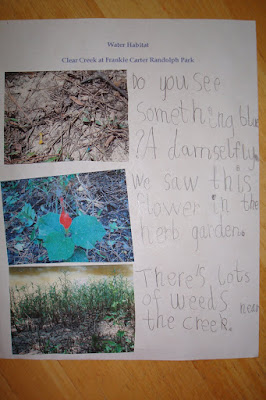 Water Habitat
Clear Creek at Frankie Carter Randolph Park
Do you see
something blue
?A damselfly.
We saw this
flower in the
herb garden.
There's lots
of weeds near
the creek.